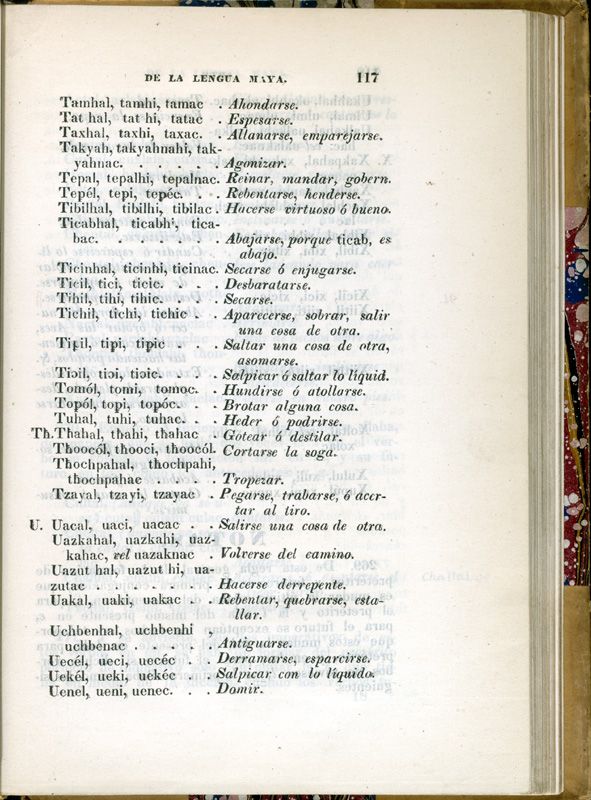 DE LA LENGUA MAYA. 117
Tamhal, tamhi, tamac . Ahondarse.
Tat hal, tat hi, tatac . Espesarse.
Taxhal, taxhi, taxac. . Allanarse, emparejarse.
Takyah, takyahnahi, tak-
yahnac. . . . . . Agonizar.
Tepal, tepalhi, tepalnac. Reinar, mandar, gobern.
Tepél, tepi, tepéc. . . Rebentarse, henderse.
Tibilhal, tibilhi, tibilac. Hacerse virtuoso ó bueno.
Ticabhal, ticabhi, tica-
bac. . . . . . . Abajarse, porque ticab, es
abajo.
Ticinhal, ticinhi, ticinac. Secarse ó enjugarse.
Ticil, tici, ticic. . . . Desbaratarse.
Tihil, tihi, tihic. . . . Secarse.
Tichil, tichi, tichic . . Aparecerse, sobrar, salir
una cosa de otra.
Tipil, tipi, tipic . . . Saltar una cosa de otra,
asomarse.
Tiɔil, tiɔi, tiɔic. . . . Salpicar ó saltar lo líquid.
Tomól, tomi, tomoc. . Hundirse ó atollarse.
Topól, topi, topóc. . . Brotar alguna cosa.
Tuhal, tuhi, tuhac. . . Heder ó podrirse.
Th. Thahal, thahi, thahac . Gotear ó destilar.
Thoocól, thooci, thoocól. Cortarse la soga.
Thochpahal, thochpahi,
thochpahac . . . . Tropezar.
Tzayal, tzayi, tzayac . Pegarse, trabarse, ó acer-
tar al tiro.
U. Uacal, uaci, uacac . . Salirse una cosa de otra.
Uazkahal, uazkahi, uaz-
kahac, vel uazaknac . Volverse del camino.
Uazut hal, uazut hi, ua-
zutac . . . . . . . Hacerse derrepente.
Uakal, uaki, uakac . . Rebentar, quebrarse, esta-
llar.
Uchbenhal, uchbenhi ,
uchbenac . . . . . Antiguarse.
Uecél, ueci, uecéc . . Derramarse, esparcirse.
Uekél, ueki, uekéc . . Salpicar con lo líquido.
Uenel, ueni, uenec. . . Domir.